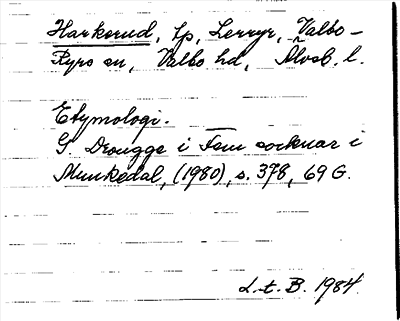 Harkerud, lp, Lerryr, Valbo-
Ryrs sn, Valbo hd, Älvsb. l.
Etymologi.
G. Drougge i Fem socknar i
Munkedal, (1980), s. 378, 69 G.
L.t. B. 1984.